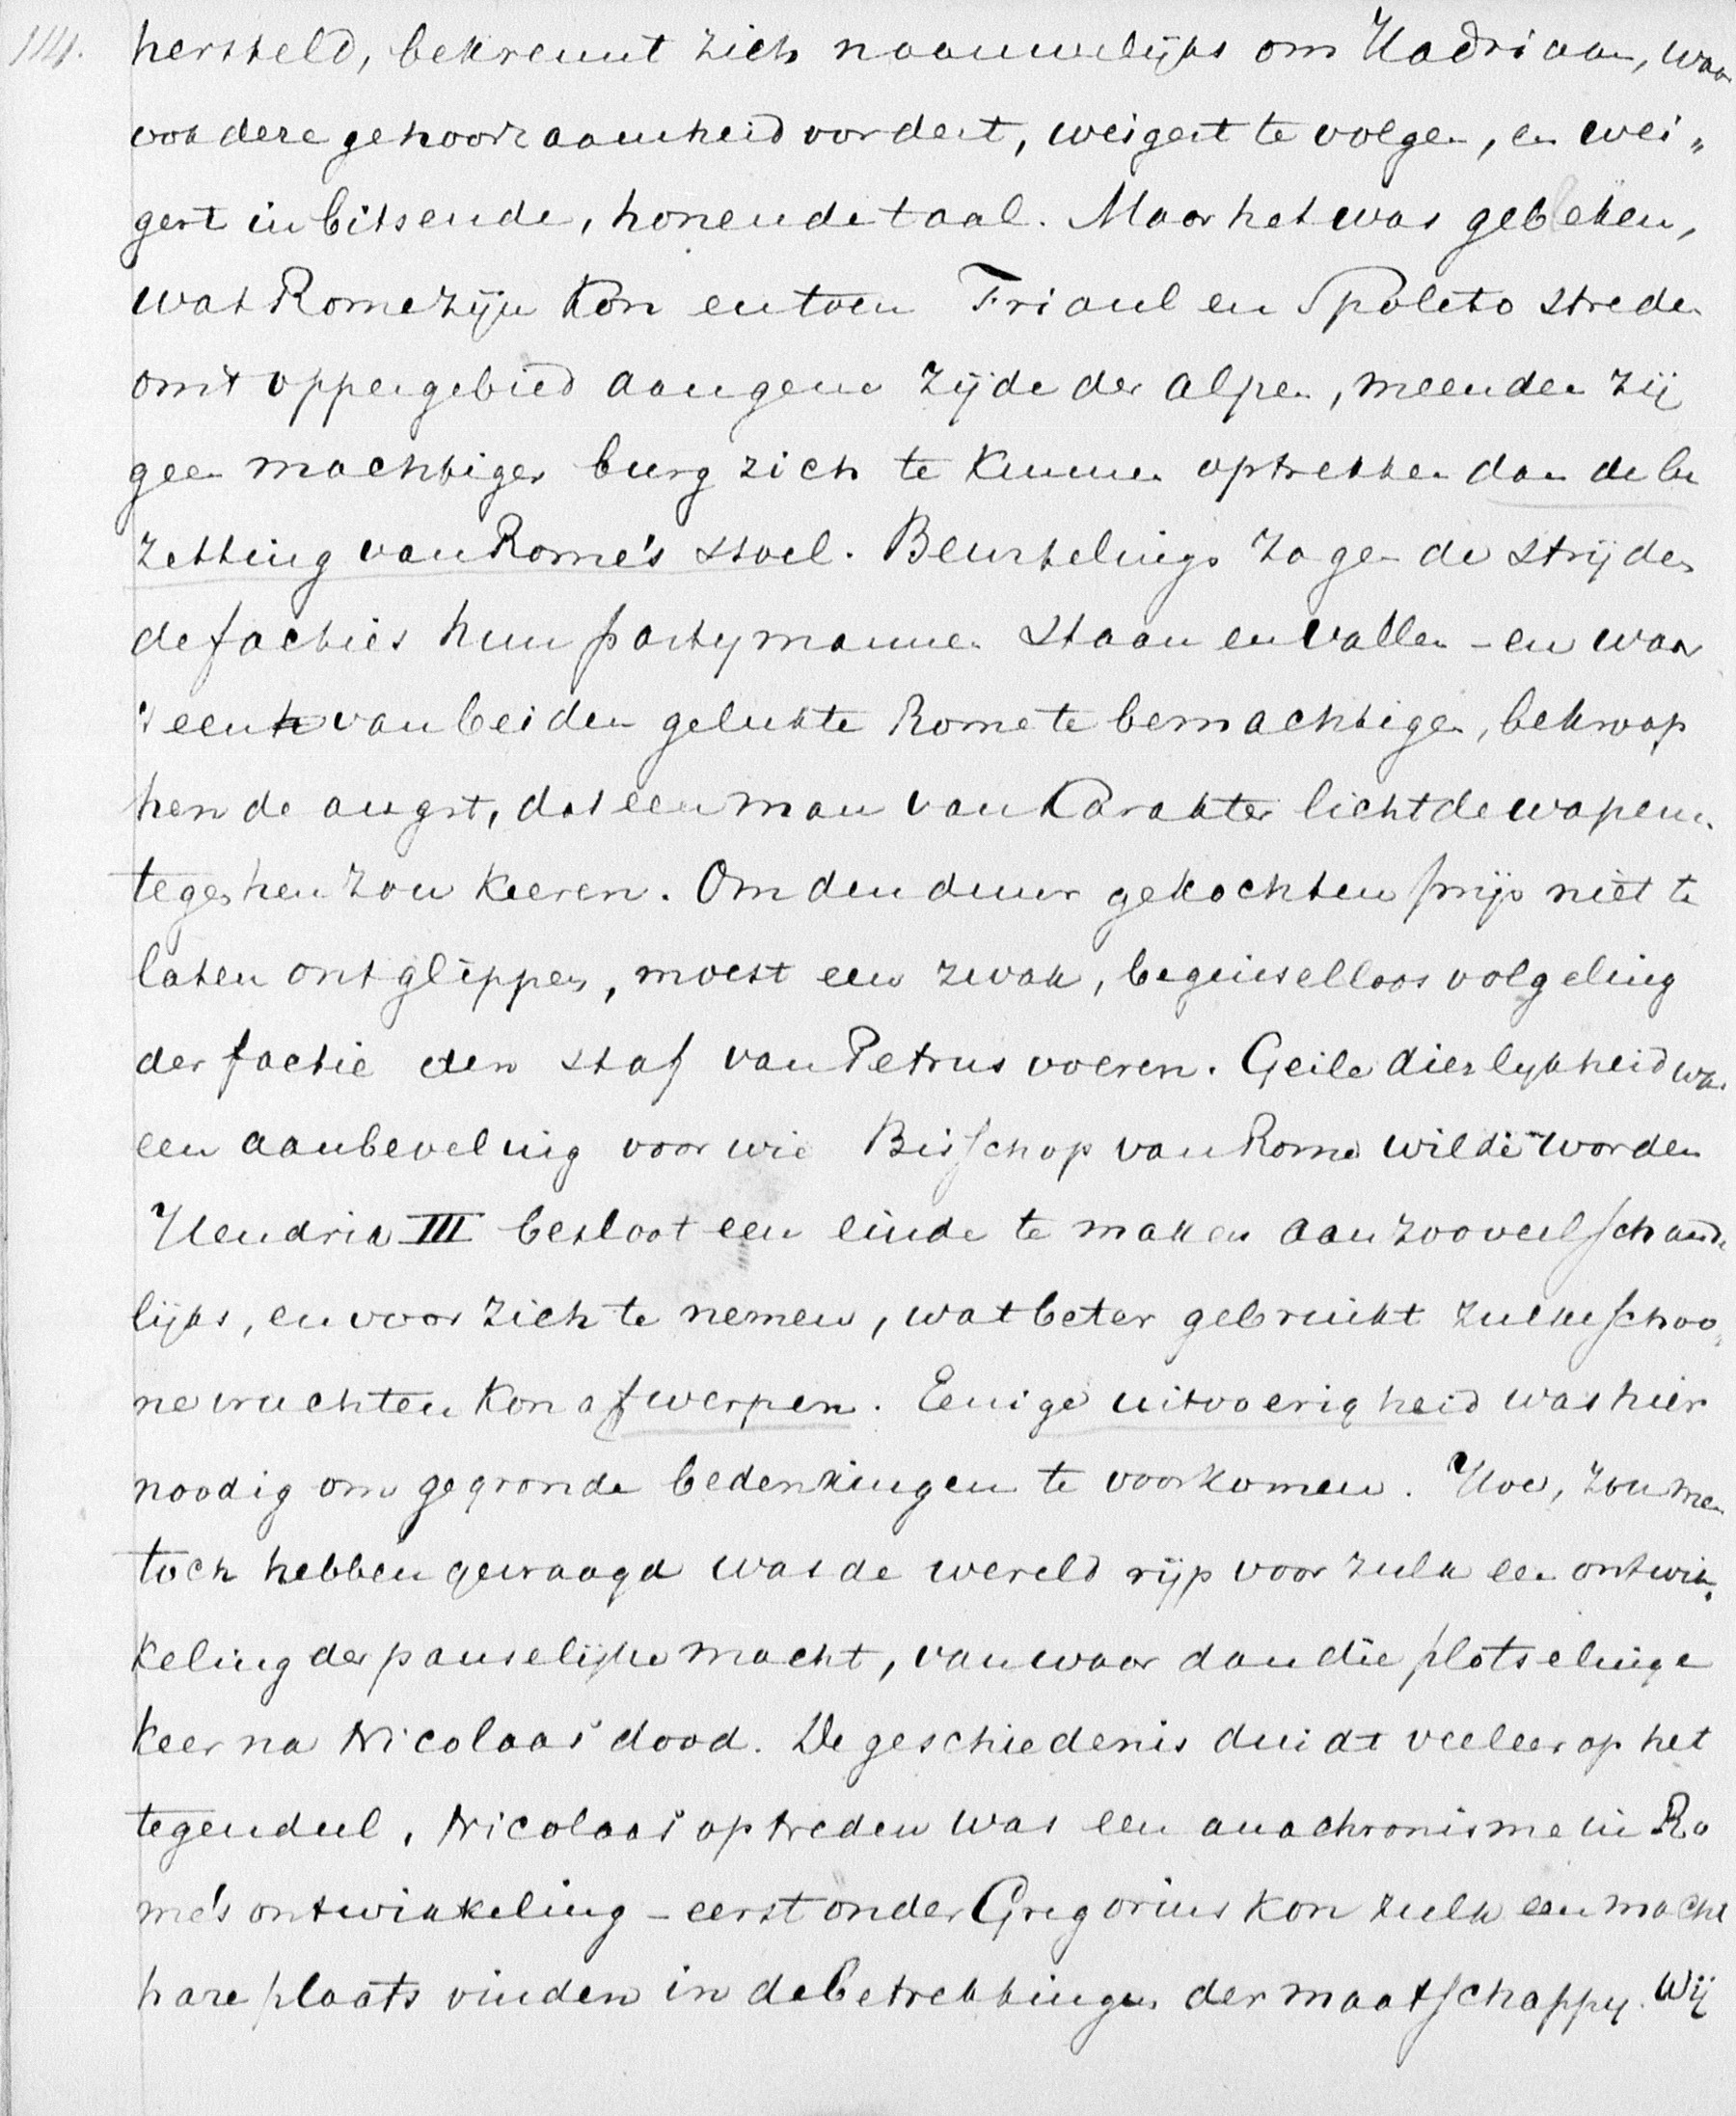 114. hersteld, bekreunt zich naauwelijks om Hadriaan, waar
ook deze gehoorzaamheid vordert, weigert te volgen, en wei„
gert in bitsende, honende taal. Maar het was gebleken,
wat Rome zijn kon en toen Friaul en Spoleto streden
om 't oppergebied aan gene zijde der alpen, meenden zij
geen machtiger burg zich te kunnen optrekken dan de be
zetting van Rome's stoel. Beurtelings zagen de strijden
de facties hun partymannen staan en vallen - en waar
't een van beiden gelukte Rome te bemachtigen, bekroop
hen de angst, dat een man van karakter licht de wapenen
tegen hen zou keeren. Om den duur gekochten prijs niet te
laten ontglippen, moest een zwak, beginselloos volgeling
der factie den staf van Petrus voeren. Geile dierlykheid was
een aanbeveling voor wie Bisschop van Rome wilde worden
Hendrik III besloot een einde te maken aan zooveel schande
lijks, en voor zich te nemen, wat beter gebruikt zulke schoo„
ne vruchten kon afwerpen. Eenige uitvoerigheid was hier
noodig om gegronde bedenkingen te voorkomen. Hoe, zou men
toch hebben gevraagd was de wereld rijp voor zulk een ontwik„
keling der pauselijke macht, vanwaar dan die plotselinge
keer na Nicolaas' dood. De geschiedenis duidt veeleer op het
tegendeel. Nicolaas' optreden was een anachronisme in Ro
me's ontwikkeling - eerst onder Gregorius kon zulk een macht
hare plaats vinden in de betrekkingen der maatschappy. Wij